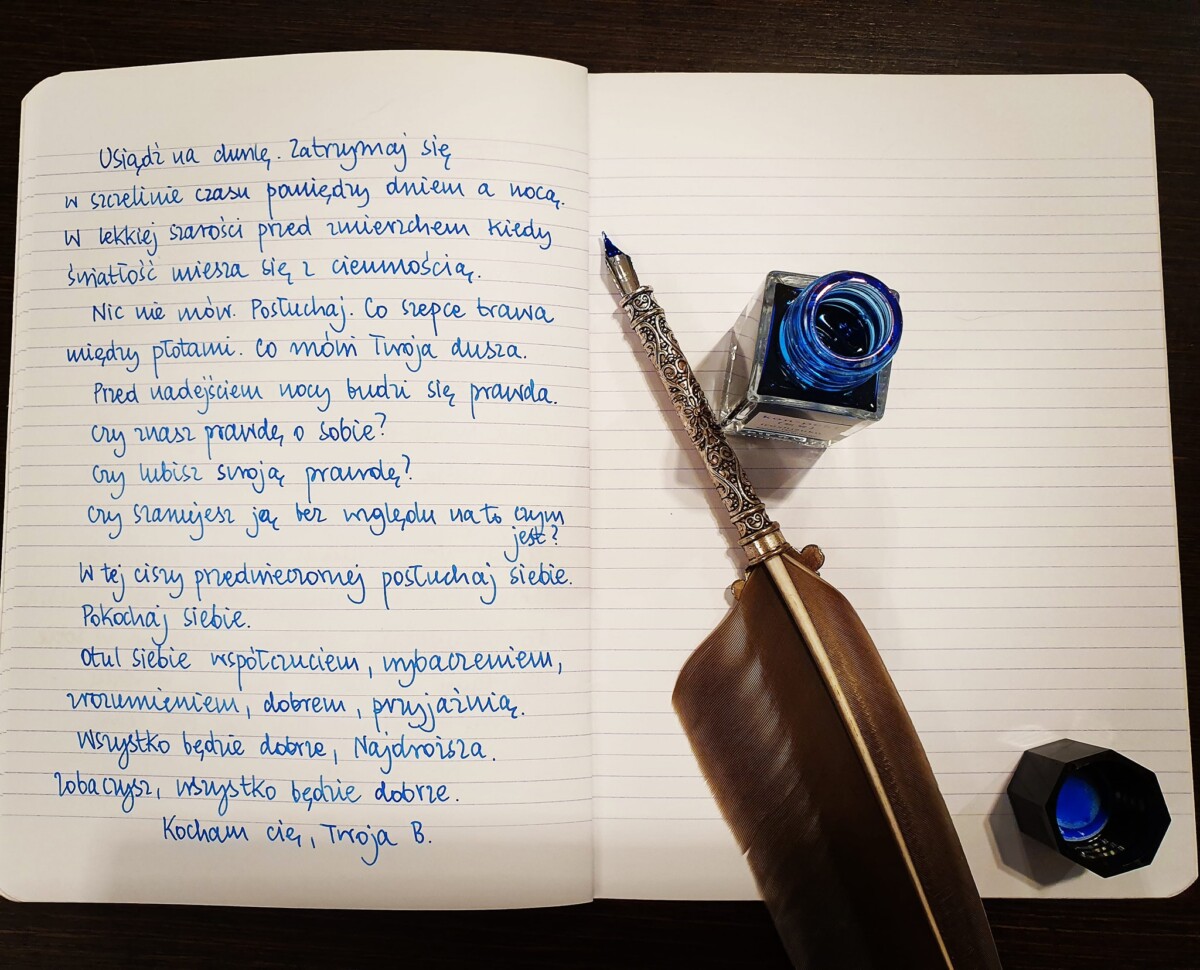 Usiądź na chwilę. Zatrzymaj się
w szczelinie czasu pomiędzy dniem a nocą.
W lekkiej szarości przed zmierzchem kiedy
światłość miesza się z ciemnością.
Nic nie mów. Posłuchaj. Co szepce trawa
między płotami. Co mówi Twoja dusza.
Przed nadejściem nocy budzi się prawda.
Czy znasz prawdę o sobie?
Czy lubisz swoją prawdę?
Czy szanujesz ją bez względu na to czym
jest?
W tej ciszy przedwieczornej posłuchaj siebie.
Pokochaj siebie.
Otul siebie współczuciem, wybaczeniem,
zrozumieniem, dobrem, przyjaźnią.
Wszystko będzie dobrze, Najdroższa.
Zobaczysz, wszystko będzie dobrze.
Kocham cię, Twoja B.